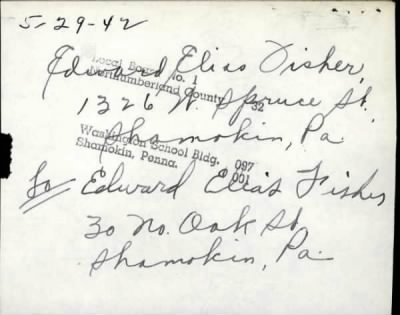 5-29-42
Edward Elias Fisher,
Local Board No. 1
Northumberland County 32
1326 W. Spruce St.
Shamokin, Pa
Washington School Bldg. 097
Shamokin, Penna. 001
To Edward Elias Fisher
30 No. Oak St
Shamokin, Pa.